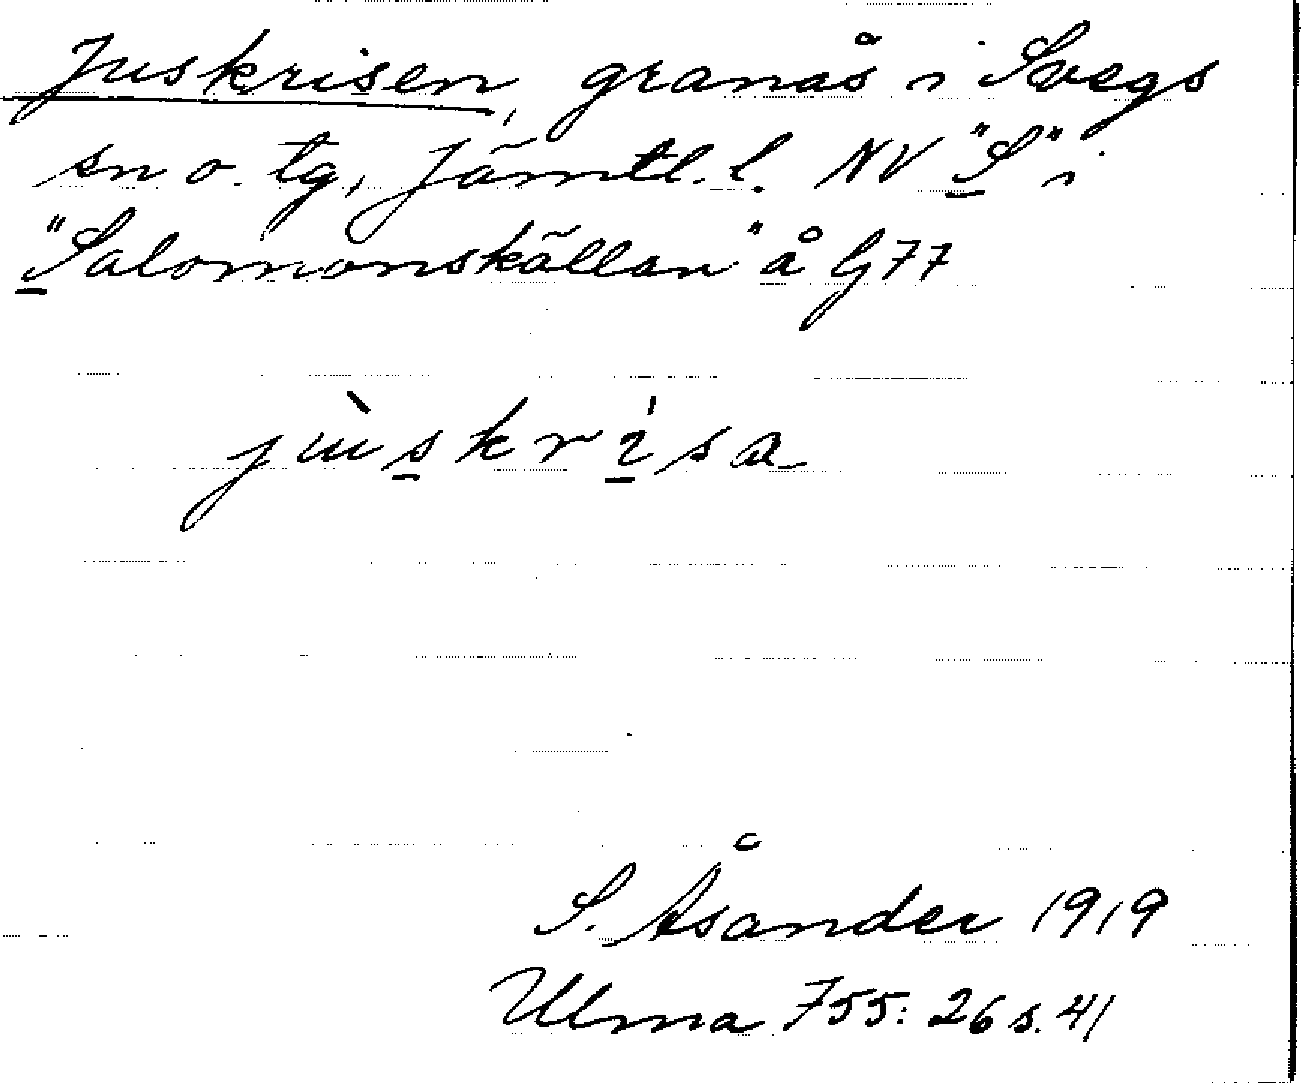 Juskrisen, granås i Svegs
sn o. tg, Jämtl. l. NV "S" i
"Salomonskällan" å G77
jùskrisa
S. Åsander 1919
Ulma 755:26 s. 41